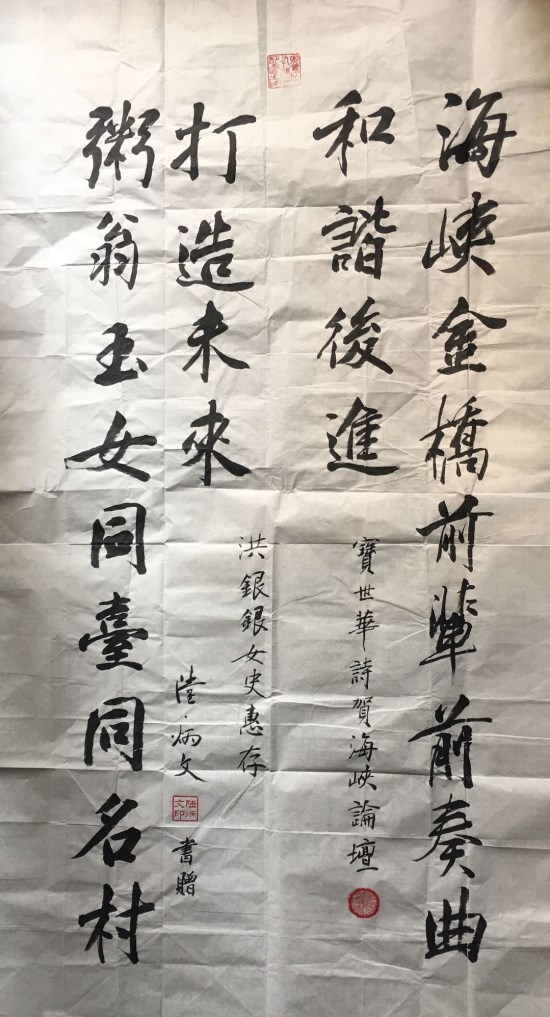 海峽金橋前輩前奏曲
和諧後進
寶世華詩賀海峽論壇
洪銀銀女史惠存
打造未來
陸炳文 書贈
粥翁玉女同臺同名村